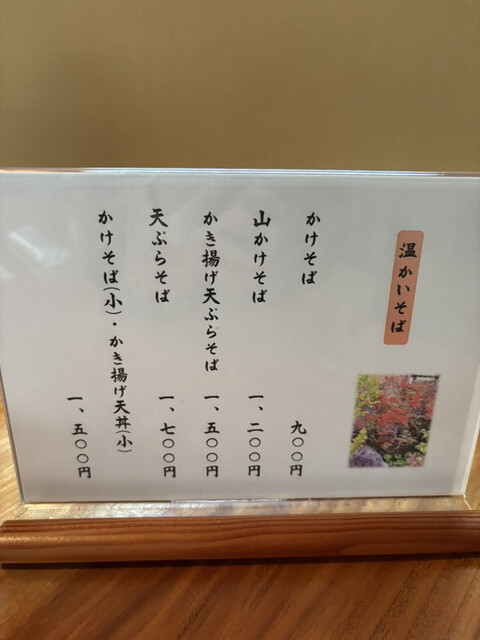 温かいそば
かけそば
九〇〇円
山かけそば
一、二〇〇円
かき揚げ天ぷらそば
一、五〇〇円
天ぷらそば
一、七〇〇円
かけそば(小)・かき揚げ天丼(小)
一、五〇〇円